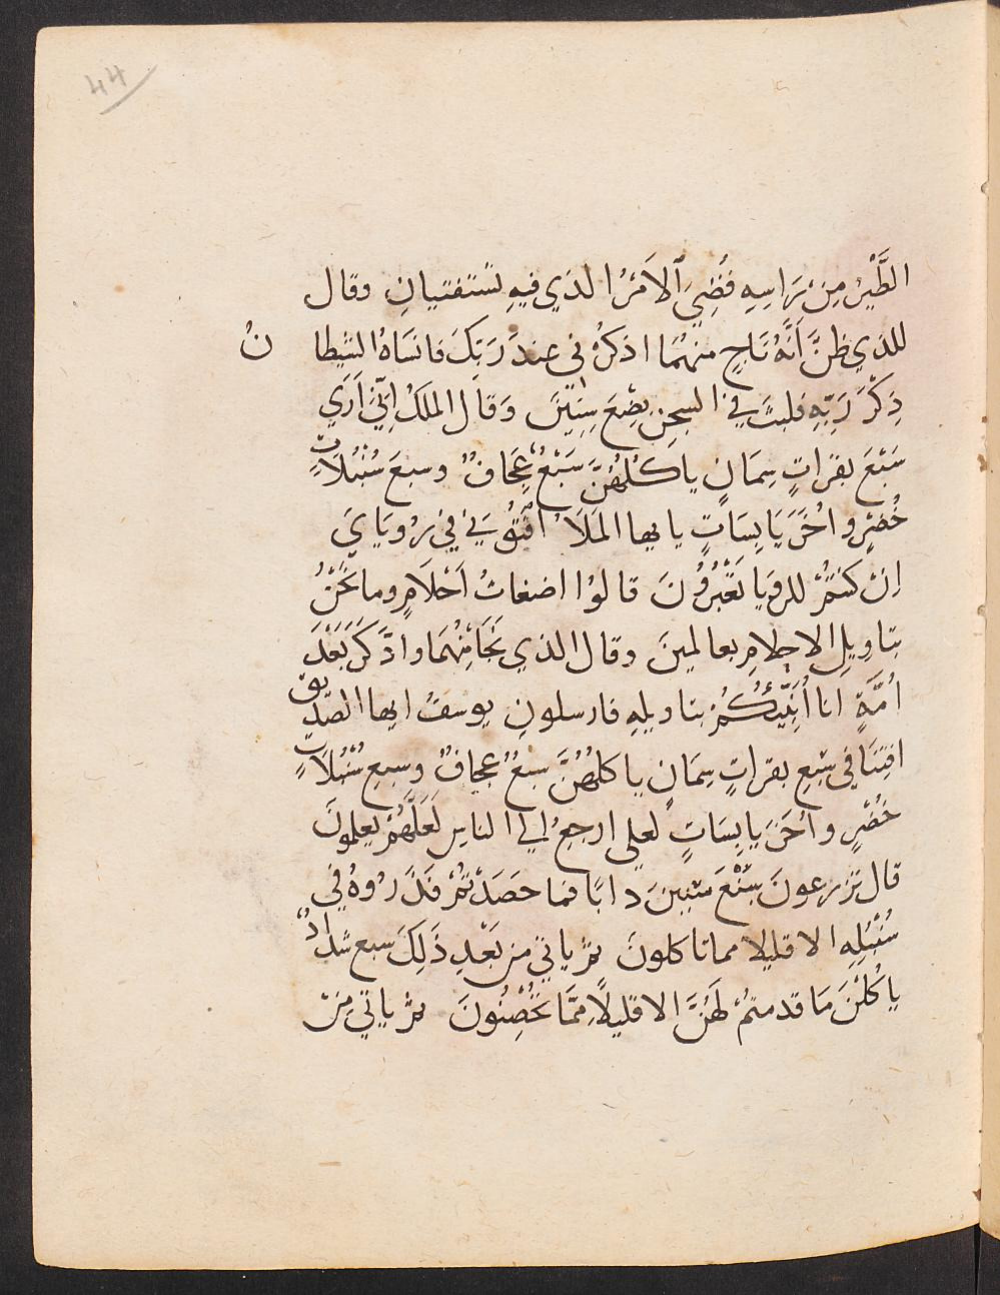 44
الطَّيْرُ مِنْ رَاسِهِ قُضِيَ ٱلاَمْرُ الذي فيهِ تَستفتيانِ وقال
للذي ظنَّ اَنَّهُ نَاجٍ منهُمَا اذكرْني عندَ رَبِّكَ فانسَاهُ الشيطانُ
ذِكْرَ رَبِّهِ فلبثَ في السجنِ بِضْعَ سِنِينَ وَقال الملكُ اِنِّي اَرَي
سَبْعَ بقراتٍ سِمَانٍ ياكُلهُنَّ سَبْعٌ عِجَافٌ وسبعَ سُنْبُلاَتٍ
خُضْرٍ واُخَرَ يَابِسَاتٍ يايها المَلَاُ افْتُوني في رُويَايَ
اِنْ كنتُمْ للرويا تَعْبُرُونَ قالوْا اضغاثُ اَحْلَامٍ وما نَحْنُ
بتاوِيلِ الاحلامِ بعالمينَ وقال الذي نَجَا مِنْهُمَا وادَّكَرَ بَعْدَ
اُمَّةٍ انا اُنَبِّئُكُمْ بتاويلهِ فارسلونِ يوسفُ ايها الصدِّيقُ
افتِنَا في سَبْعِ بقراتٍ سِمَانٍ ياكلهُنَّ سَبْعٌ عجافٌ وسبعِ سُنْبُلاَتٍ
خُضْرٍ واُخَرَ يابِسَاتٍ لعلي ارجعُ الي الناسِ لَعَلَّهُمْ يعلمونَ
قال تزرعونَ سَبْعَ سنِينَ دابًا فما حصَدْتُمْ فَذَرُوهُ في
سُنْبُلِهِ الا قليلا مما تاكلونَ ثم ياتي من بَعْدِ ذَلِكَ سبع شدادٌ
ياكُلْنَ مَا قدمتمْ لَهُنَّ الا قليلًا مِمَّا تُحْصِنُونَ ثم ياتي مِنْ